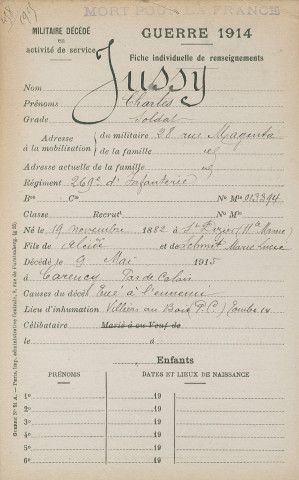 MORT POUR LA FRANCE
MILITAIRE DÉCÉDÉ
en
activité de service
GUERRE 1914
Fiche individuelle de renseignements
Jussy
Nom
Prénoms Charles
Grade Soldat
Adresse à la mobilisation { du militaire 28 rue Magenta
de la famille id
Adresse actuelle de la famille id
Régiment 269e d'Infanterie
Bon Cie No Mle 013394
Classe Recrut No Mle
Né le 19 novembre 1882 à St Dizier (Hte Marne)
Fils de et de Schmit Marie
Décédé le 9 Mai 1915
à Carency Pas de Calais
Causes du décès Tué à l'ennemi
Lieu d'inhumation Villiers au Bois (P.C.) Tombe
Célibataire Marié à ou Veuf de
le à
Enfants
PRÉNOMS DATES ET LIEUX DE NAISSANCE
1o 19
2o 19
3o 19
4o 19
5o 19
6o 19